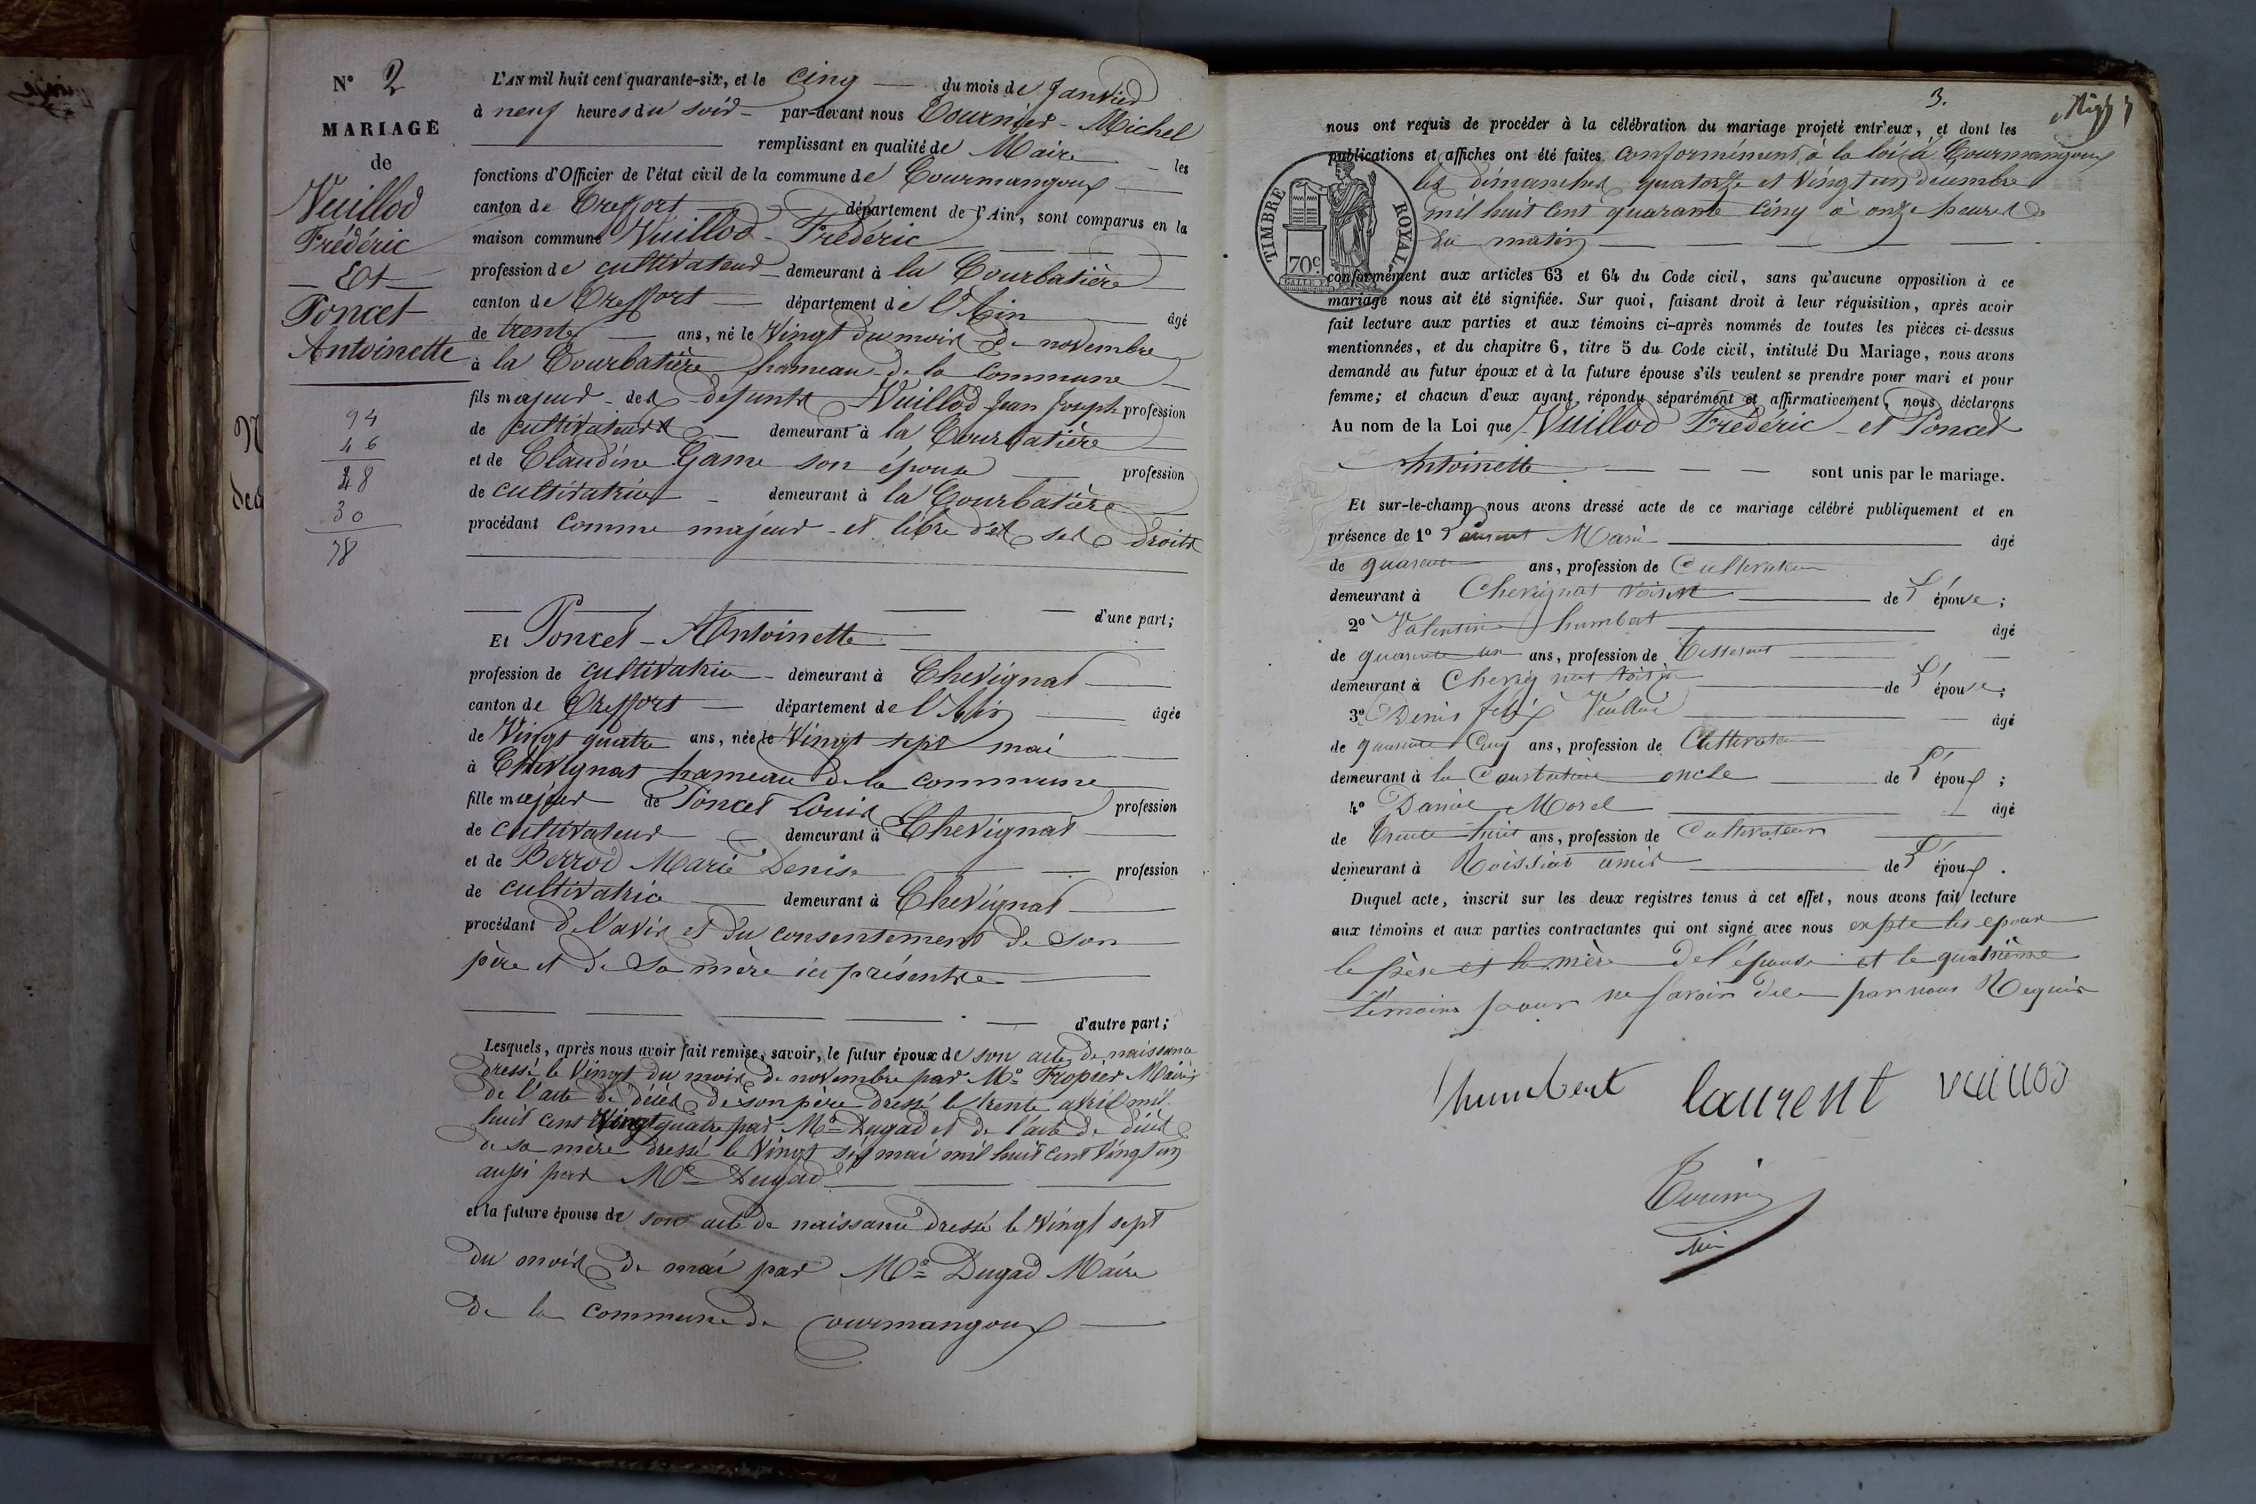 N° 2
MARIAGE
de
Vuillod
Frédéric
Et
Poncet
Antoinette
94
46
48
30
78
L'AN mil huit cent quarante-six, et le cinq du mois de Janvier
à neuf heures du soir par-devant nous Tournier Michel
remplissant en qualité de Maire les
fonctions d'Officier de l'état civil de la commune de Courmangoux
canton de Treffort département de l'Ain, sont comparus en la
maison commune Vuillod Frédéric
profession de cultivateur demeurant à la Courbatière
canton de Treffort département de l'Ain âgé
de trente ans, né le Vingt du mois de novembre
à la Courbatière hameau de la commune
fils majeur des défunts Vuillod Jean Joseph profession
de cultivateurs demeurant à la Courbatière
et de Claudine Game son épouse profession
de cultivatrice demeurant à la Courbatière
procédant comme majeur et libre de ses droits
d'une part;
Et Poncet Antoinette
profession de cultivatrice demeurant à Chevignat
canton de Treffort département de l'Ain âgée
de Vingt quatre ans, née le Vingt sept mai
à Chevignat hameau de la commune
fille majeur de Poncet Louis profession
de cultivateur demeurant à Chevignat
et de Berrod Marie Denise profession
de cultivatrice demeurant à Chevignat
procédant de l'avis et du consentement de son
père et de sa mère ici présents
d'autre part;
Lesquels, après nous avoir fait remise, savoir, le futur époux de son acte de naissance
dressé le Vingt du mois de novembre par Mr Tropier Maire
de l'acte de décès de son père dressé le trente avril mil
huit cent Vingt quatre par Mr Dugad et de l'acte de décès
de sa mère dressé le Vingt six mai mil huit cent Vingt un
aussi par Mr Dugad
et la future épouse de son acte de naissance dressé le Vingt sept
du mois de mai par Mr Dugad Maire
de la commune de Courmangoux
3.
nous ont requis de procéder à la célébration du mariage projeté entr'eux, et dont les
publications et affiches ont été faites conformément à la loi à Courmangoux
les dimanches quatorze et Vingt un décembre
mil huit cent quarante cinq à onze heures
du matin
TIMBRE ROYAL
70c
conformément aux articles 63 et 64 du Code civil, sans qu'aucune opposition à ce
mariage nous ait été signifiée. Sur quoi, faisant droit à leur réquisition, après avoir
fait lecture aux parties et aux témoins ci-après nommés de toutes les pièces ci-dessus
mentionnées, et du chapitre 6, titre 5 du Code civil, intitulé Du Mariage, nous avons
demandé au futur époux et à la future épouse s'ils veulent se prendre pour mari et pour
femme; et chacun d'eux ayant répondu séparément et affirmativement, nous déclarons
Au nom de la Loi que Vuillod Frédéric et Poncet
Antoinette sont unis par le mariage.
Et sur-le-champ nous avons dressé acte de ce mariage célébré publiquement et en
présence de 1° Laurent Marie âgé
de quarante ans, profession de Cultivateur
demeurant à Chevignat voisin de l'épouse;
2° Valentin humbert âgé
de quarante un ans, profession de Tisserant
demeurant à Chevignat voisin de l'épouse;
3° Denis felix Vuillod âgé
de quarante Cinq ans, profession de Cultivateur
demeurant à la Courbatière oncle de l'époux;
4° Daniel Morel âgé
de trente huit ans, profession de Cultivateur
demeurant à Roissiat amis de l'époux.
Duquel acte, inscrit sur les deux registres tenus à cet effet, nous avons fait lecture
aux témoins et aux parties contractantes qui ont signé avec nous expte les epoux
le père et la mère de l'épouse et le quatrième
témoins pour ne savoir de par nous Requis
humbert laurent vuillod
Tournier